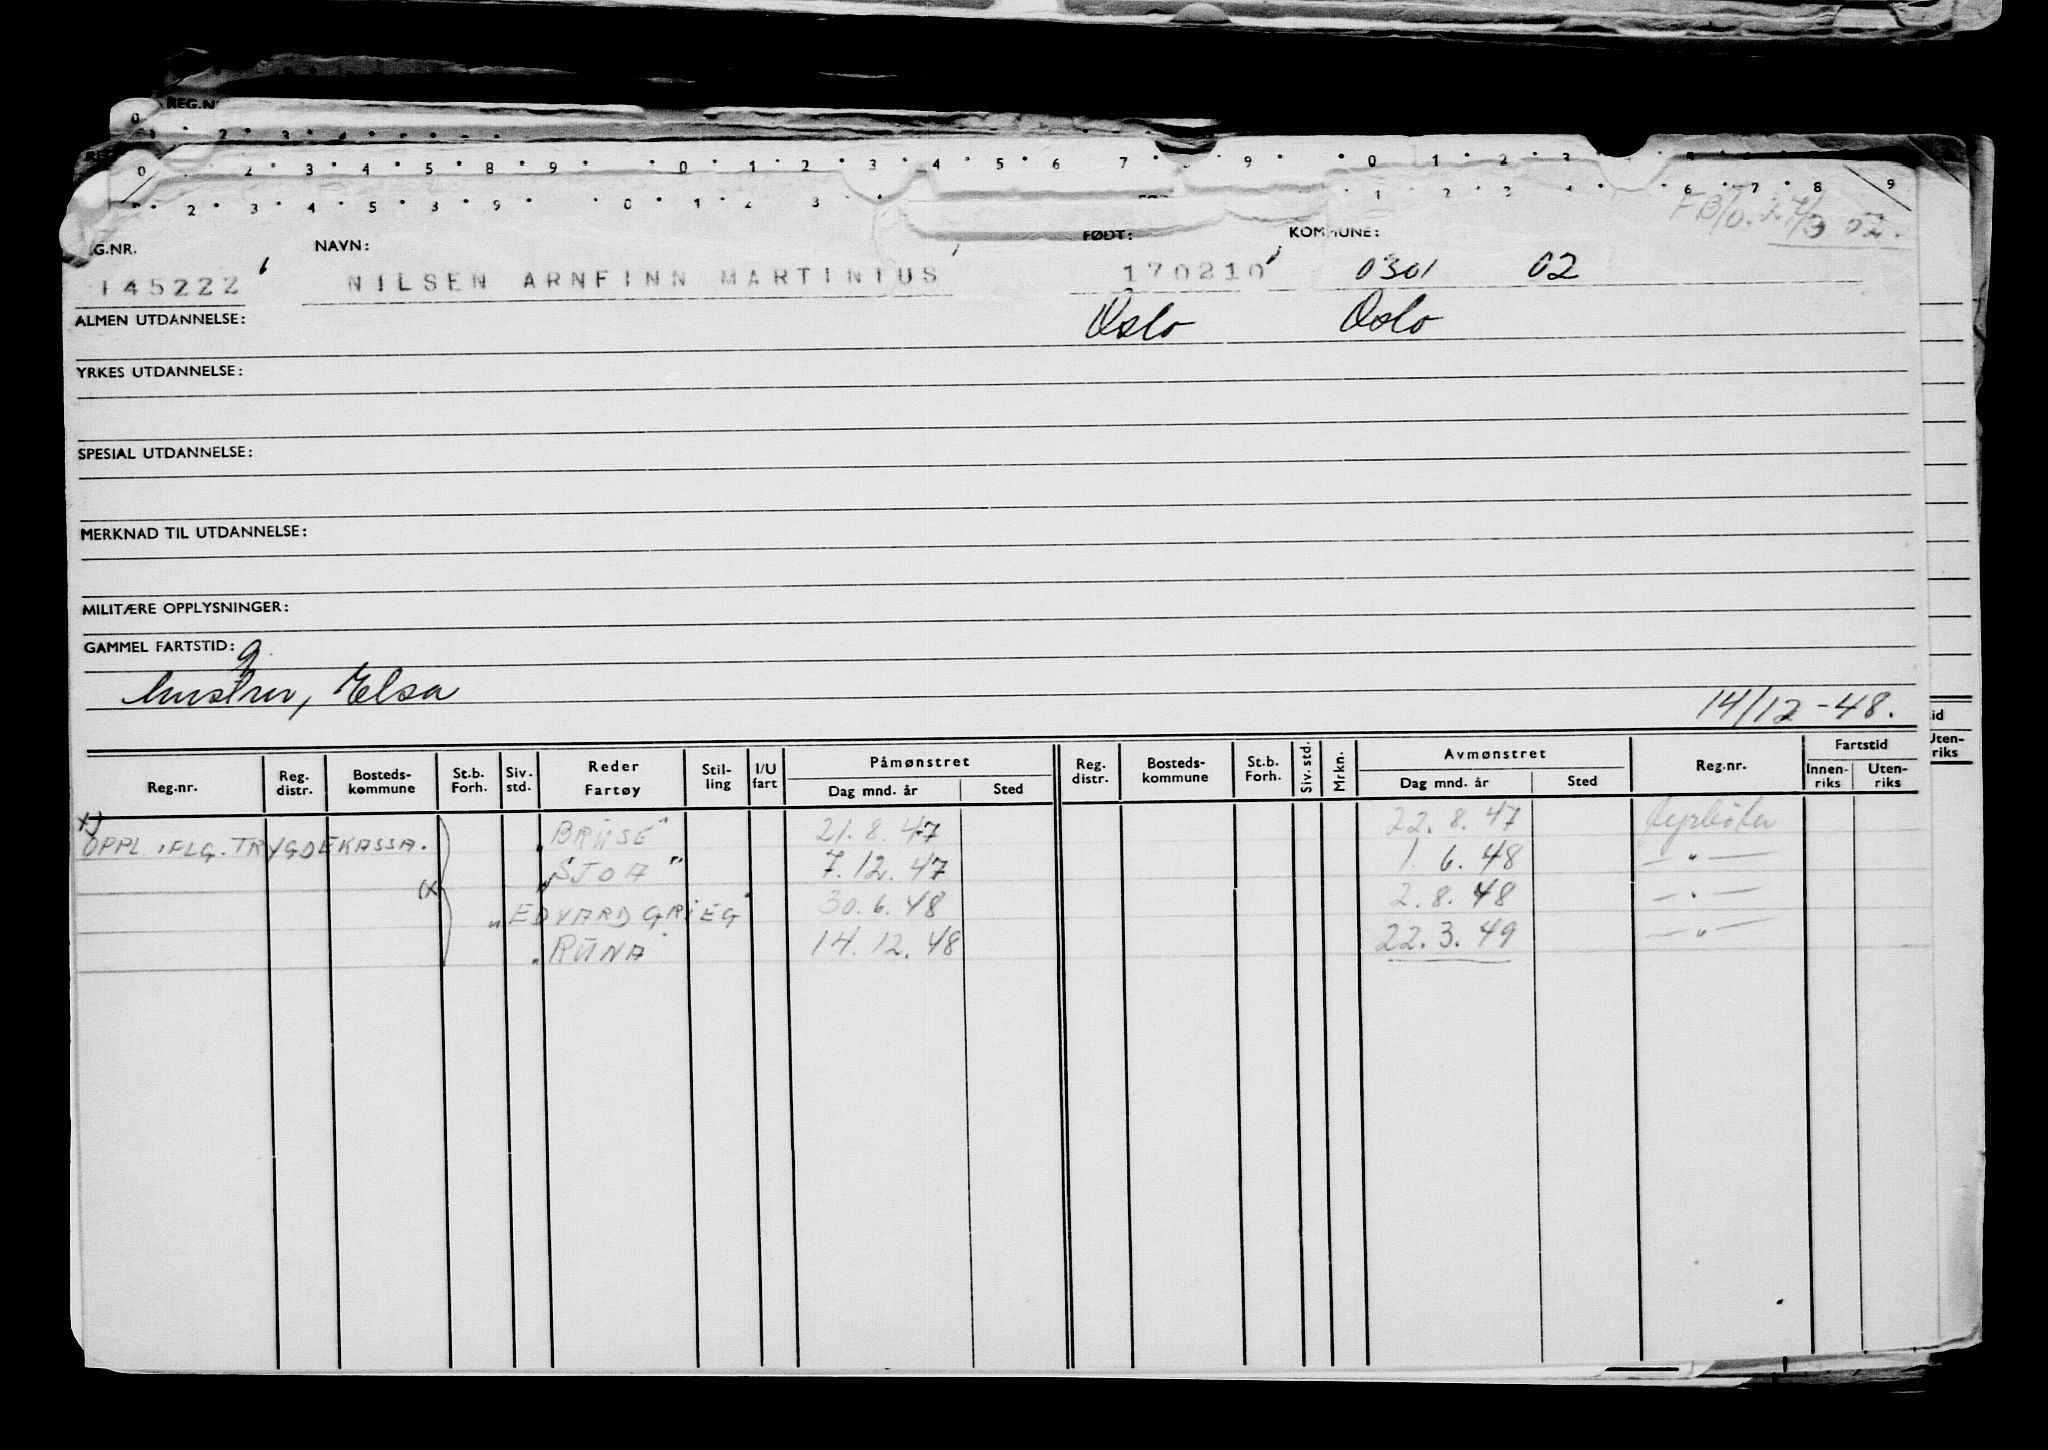 REG.N
0 1 2 3 4 5
REG
0 2 3 4 5 8 9 0 1 2 3 4 5 6 7 9 0 1 2 3
2 3 4 5 8 9 0 1 2 3 1 2 3 4 6 7 8 9
02.
G.NR. NAVN: FØDT: KOMMUNE:
145222 6 NILSEN ARNFINN MARTINIUS 170210 0301 02
ALMEN UTDANNELSE: Oslo Oslo
YRKES UTDANNELSE:
SPESIAL UTDANNELSE:
MERKNAD TIL UTDANNELSE:
MILITÆRE OPPLYSNINGER:
GAMMEL FARTSTID: g.
hustru, Elsa 14/12-48.
Reg.nr. Reg. distr. Bosteds-kommune St.b. Forh. Siv. std. Reder Fartøy Stil-ling I/U fart Påmønstret Dag mnd. år Sted Reg. distr. Bosteds-kommune St.b. Forh. Siv. std. Mrkn. Avmønstret Dag mnd. år Sted Reg.nr. Fartstid Innen-riks Uten-riks
id
Uten-riks
x) "BRUSE" 21.8.47 22.8.47 Fyrbøter
OPPL. IFLG. TRYGDEKASSA. "SJOA" 7.12.47 1.6.48 — " —
(x "EDVARD GRIEG" 30.6.48 2.8.48 — " —
"RUNA" 14.12.48 22.3.49 — " —